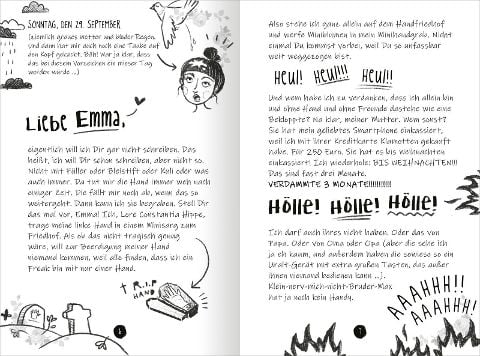 SONNTAG, DEN 29. SEPTEMBER
(ziemlich graues Wetter und blöder Regen.
und dann hat mir auch noch eine Taube auf
den Kopf gekackt. Bäh! War ja klar, dass
das bei diesem Vorzeichen ein mieser Tag
worden würde ...)
Liebe Emma,
eigentlich will ich Dir gar nicht schreiben. Das
heißt, ich will Dir schon schreiben, aber nicht so.
Nicht mit Füller oder Bleistift oder Kuli oder was
auch immer. Da tut mir die Hand immer weh nach
einiger Zeit. Die fällt mir noch ab, wenn das so
weitergeht. Dann kann ich sie begraben. Stell Dir
das mal vor, Emma! Ich, Lore Constantia Hippe,
trage meine linke Hand in einem Minisarg zum
Friedhof. Als ob das nicht tragisch genug
wäre, will zur Beerdigung meiner Hand
niemand kommen, weil alle finden, dass ich ein
Freak bin mit nur einer Hand.
R.I.P
HAND
6
Also stehe ich ganz allein auf dem Handfriedhof
und werfe Miniblumen in mein Minihandgrab. Nicht
einmal Du kommst vorbei, weil Du so unfassbar
weit weggezogen bist.
HEUL! HEUL!!! HEUL!!
Und wem habe ich zu verdanken, dass ich allein bin
und ohne Hand und ohne Freunde dastehe wie eine
Bekloppte? Na klar, meiner Mutter. Wem sonst?
Sie hat mein geliebtes Smartphone einkassiert,
weil ich mit ihrer Kreditkarte Klamotten gekauft
habe. Für 250 Euro. Sie hat es bis Weihnachten
einkassiert! Ich wiederhole: BIS WEIHNACHTEN!!!
Das sind fast drei Monate.
VERDAMMTE 3 MONATE!!!!!!!!!!!
Hölle! Hölle! Hölle!
Ich darf auch ihres nicht haben. Oder das von
Papa. Oder von Oma oder Opa (aber die sehe ich
ja eh kaum, und außerdem haben die sowieso so ein
Uralt-Gerät mit extra großen Tasten, das außer
ihnen niemand bedienen kann ...).
Klein-nerv-mich-nicht-Bruder-Max
hat ja noch kein Handy.
AAAHHH!!
AAAHHH!
7